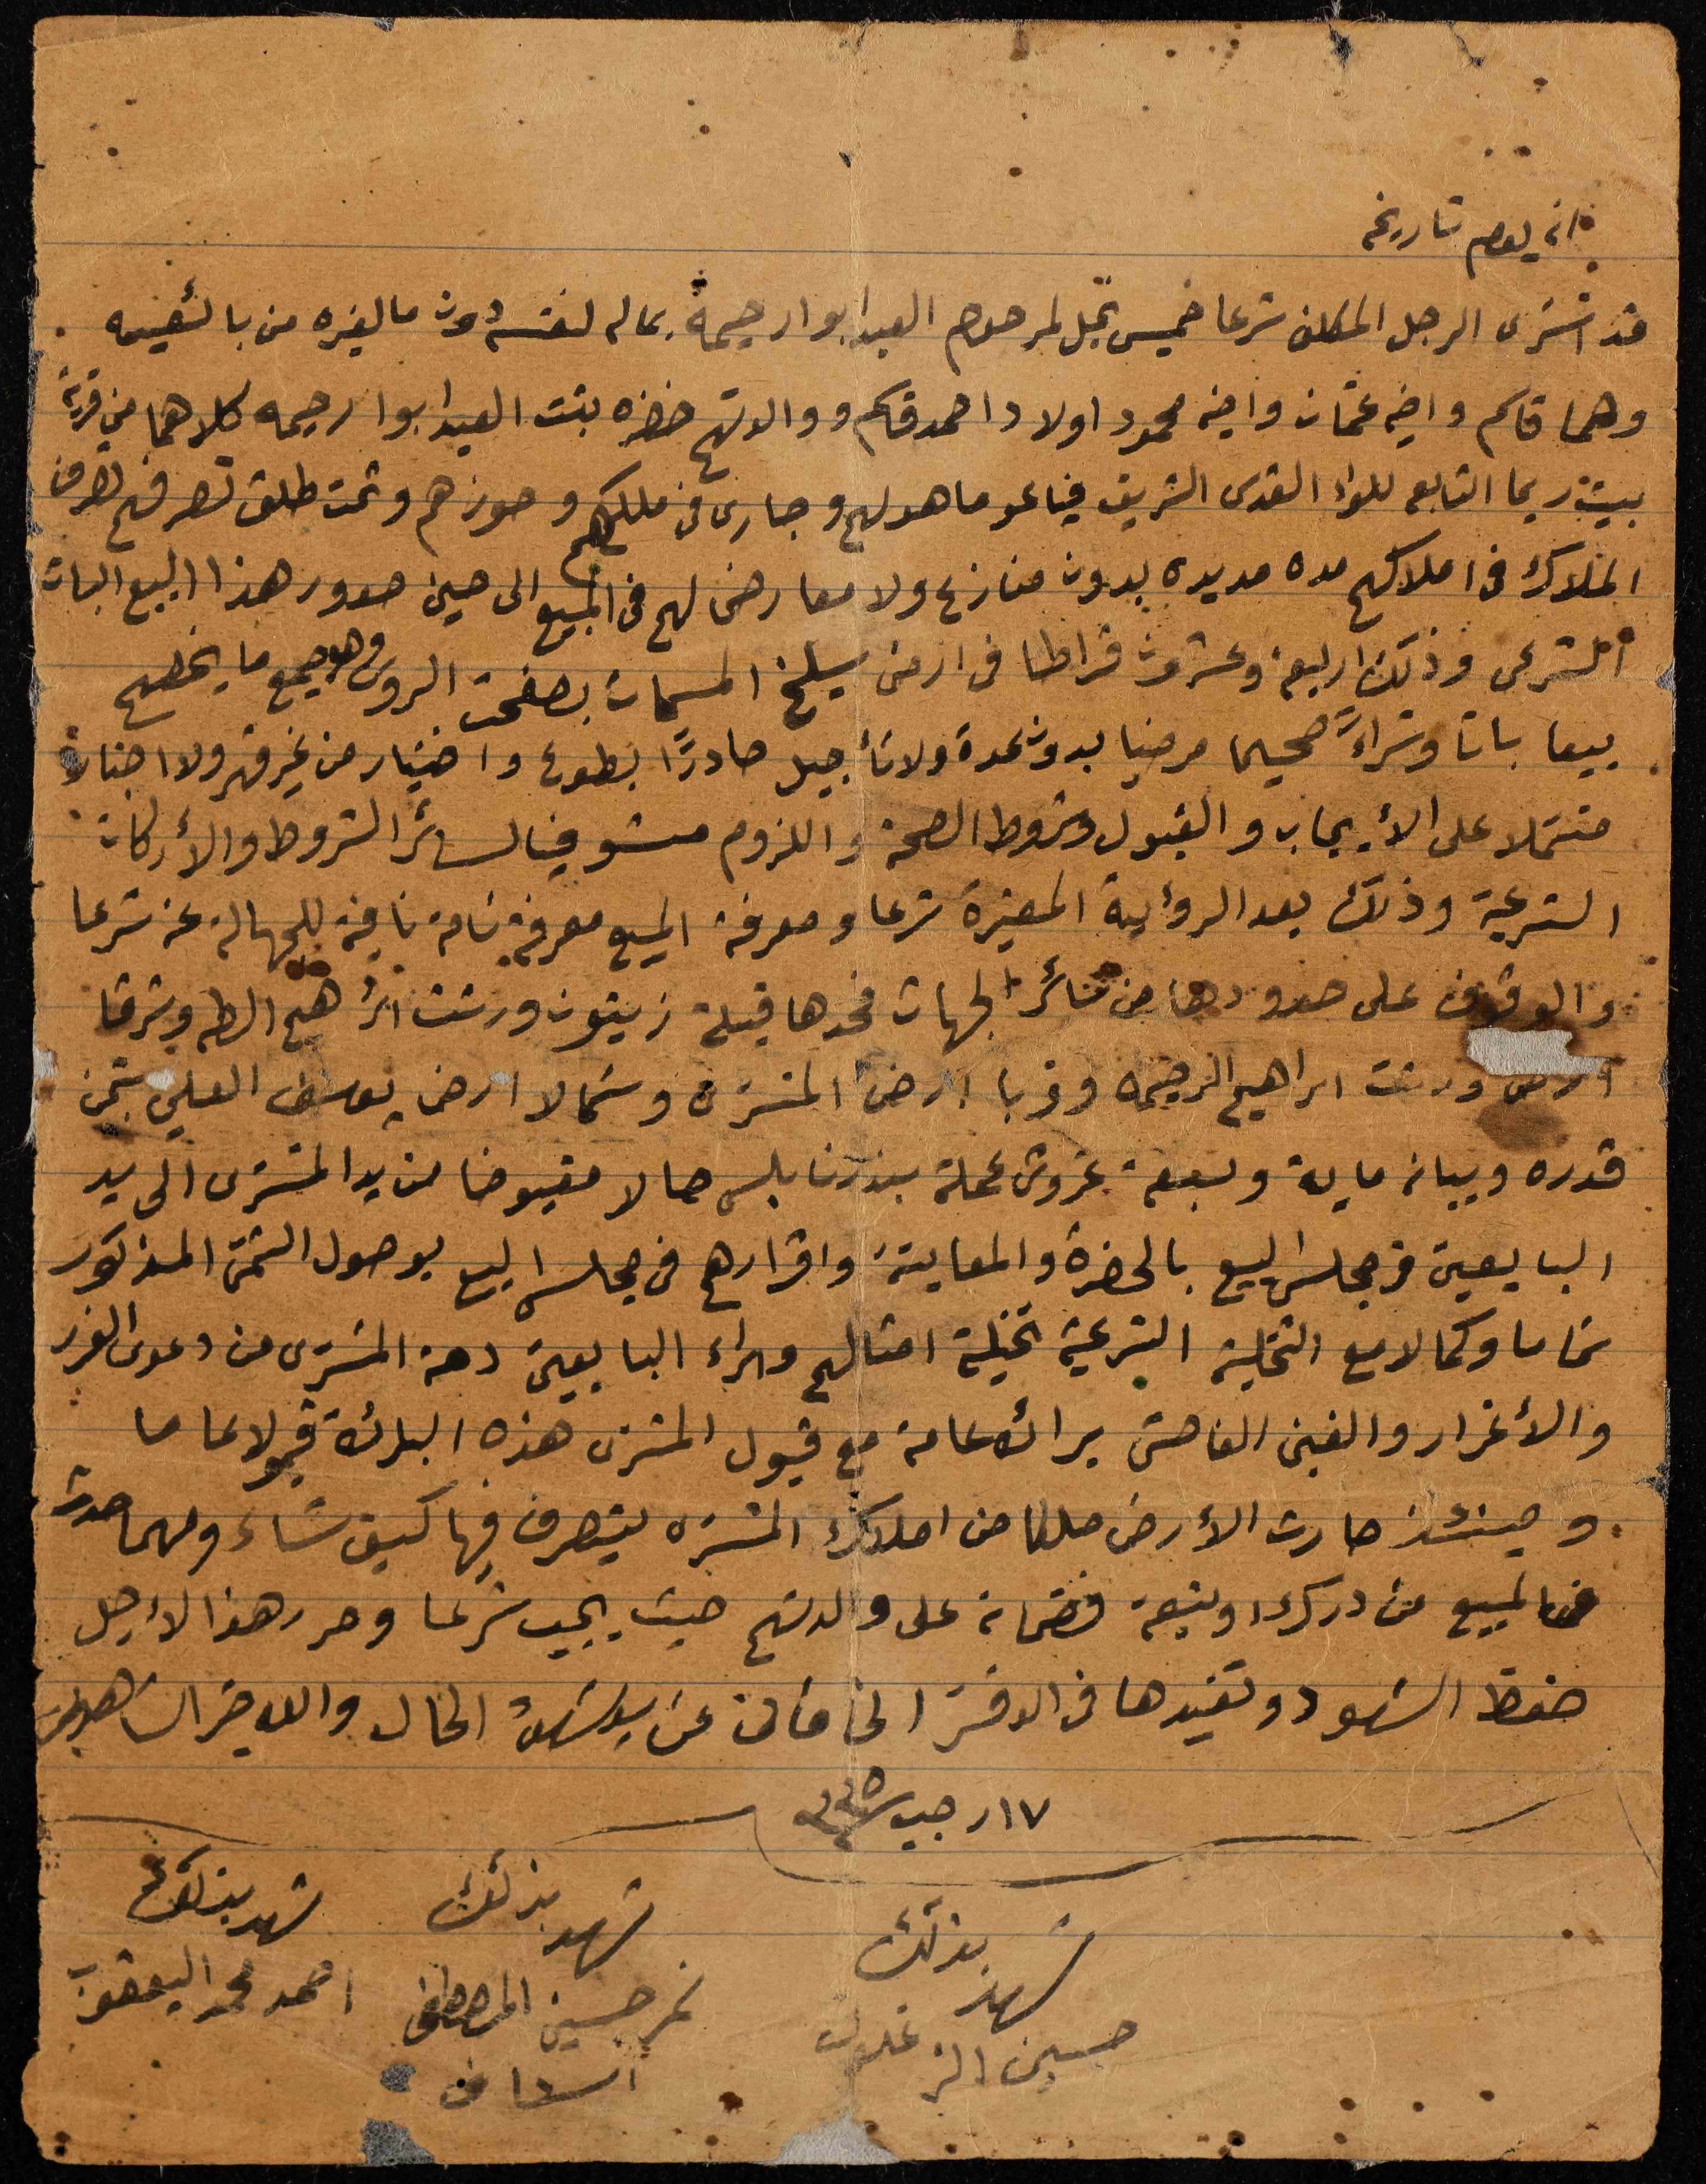 انه يوم تاريخه
قد اشترى الرجل المكلف شرعا خميس نجل المرحوم العبد ابوا رحيمة بماله لنفسه دون مال غيره من بائعيه
وهما قاسم واخيه عثمان واخيه محمود اولاد احمد قاسم ووالدتهم خضره بنت العبد ابوا رحيمه كلاهما من قرية
بيت ريما التابعه للواء القدس الشريف فباعو ما هو لهم وجارى فى ملكهم وحوزهم وتحت طلق تصرفهم تصرف
الملاك فى املاكهم مده مديده بدون منازع ولا معارض لهم فى المبيع الى حين صدور هذا البيع البات
الشرعى وذلك اربعة وعشرون قراطا فى ارض المسمات وهو جميع ما يخصهم
بيعا باتا وشراءً صحيحا مرضيا بدون عدة ولا تأجيل صادرًا بطوع واختيار من غير قهر ولا اجبار
مشتملا على الأيجاب والقبول وشروط الصحة واللزوم مستوفيا لسائر الشروط والأركان
الشرعية وذلك بعد الرؤية المعتبرة شرعا ومعرفة المبيع معرفة تامة نافية للجهالة عنه شرعا
والوقوف على حدودها من سائر الجهات فحدها قبلة زيتون ورثت ابراهيم الطه وشرقا
ارض ورثت ابراهيم الرحيمه وغربا ارض المشترى وشمالا ارض يوسف العلي بثمن
قدره وبيانه ماية وسبعة غروش عملة بندر نابلس حالا مقبوضا من يد المشترى الى يد
البايعين فى مجلس البيع بالحضرة والمعاينة واقرارهم فى مجلس البيع بوصول الثمن المذكور
تماما وكمالا مع التخلية الشرعية تخلية امثالهم وبراء البايعين ذمة المشترى من دعوى الغرر
والأغرار والغبن الفاحش برائه عامة مع قبول المشترى هذه البرائة قبولا عاما
وحينئذ صارت الأرض ملكا من املاك المشترى يتصرف فيها كيف شاء ومهما حدث
فى المبيع من درك او تبعة فضمانه على والدتهم حيث يجب شرعا وحرر هذا لأجل
حفظ الشهود وتقيدها فى الدفتر الخاقانى عن يد شهود الحال والله خير الشاهدين
١٧ رجب
شهد بذلك
حسين الزغلول
شهد بذلك
نمر حسين المصطفى
شهد بذلك
احمد محمد اليعقوب